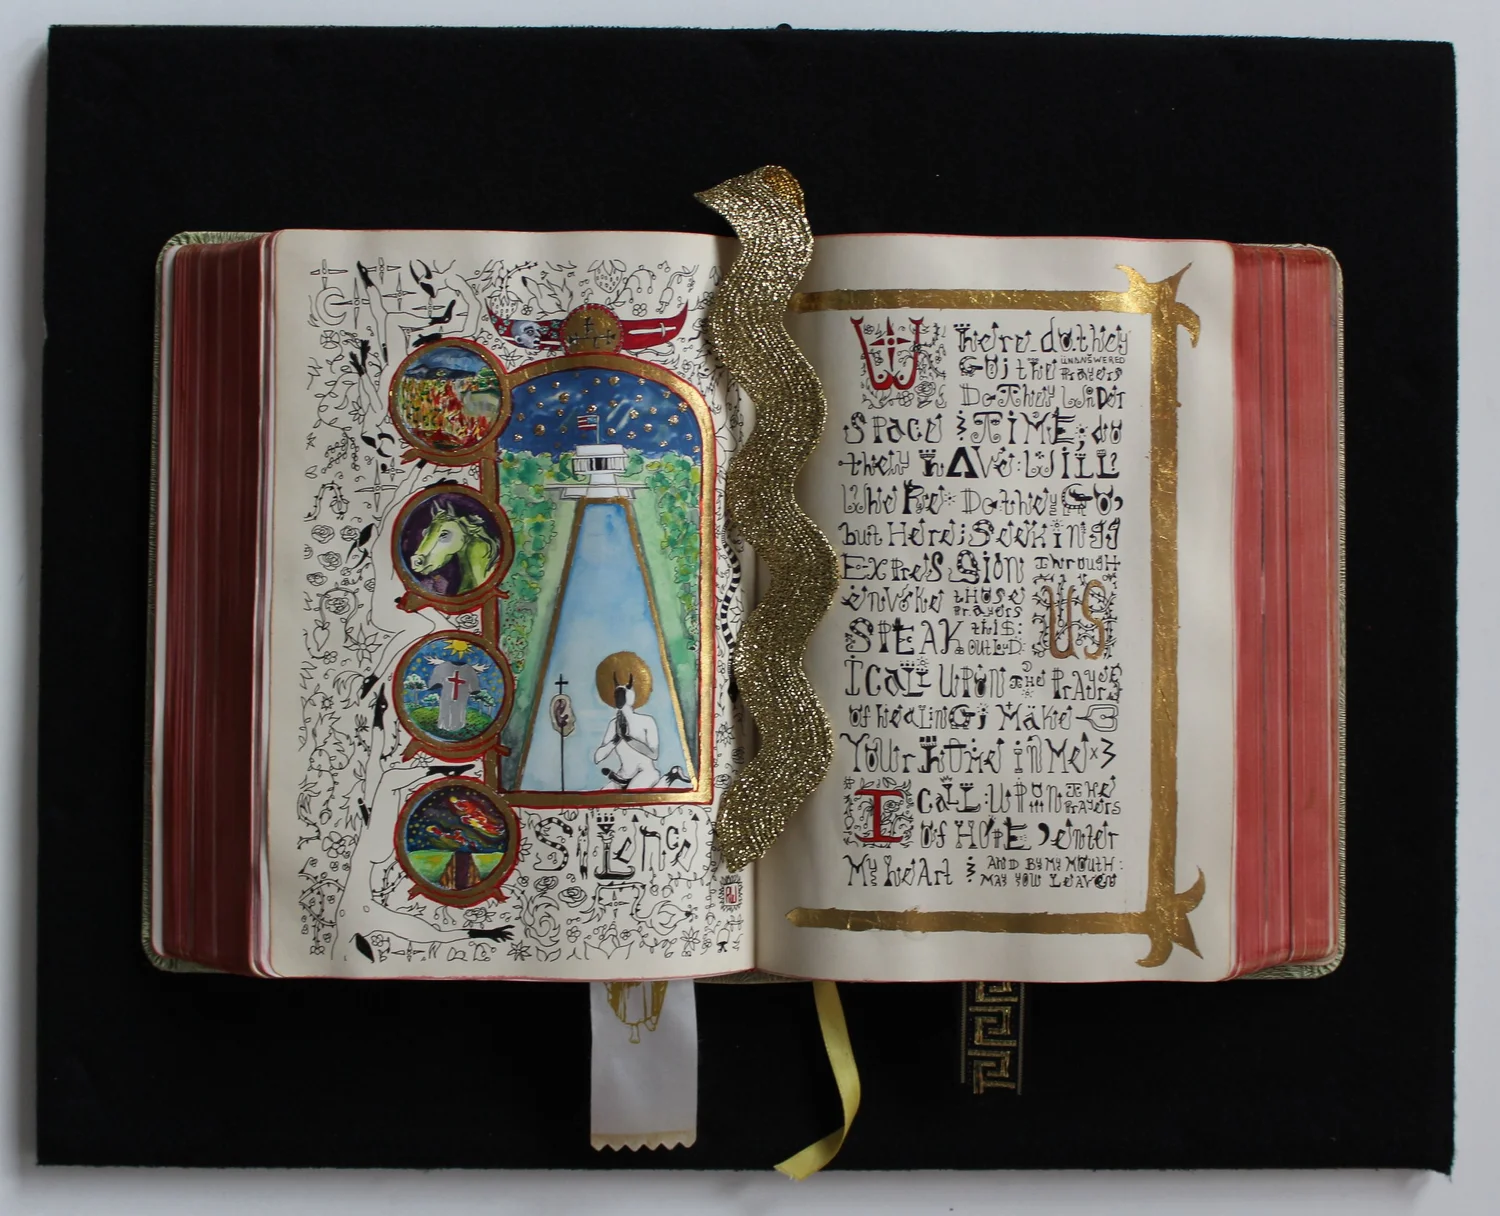 Silence
Where do they
Go: the UNANSWERED PrAyers
Do They WANDer
SPace & TIME, do
they hAve: WILL
Where Do they GO,
but Here: Seeking
ExpresSion Through
invoke those PrAyers US
SPEAK this: OUTLOUD:
I CaLL UPON THE PrAyers
of heaLinG: Make
Your Home in Me
I CaLL: UPON THE PrAyers
of HOPE, enter
My heArt & AND BY MY MOUTH:
MAY YOU LEAVE